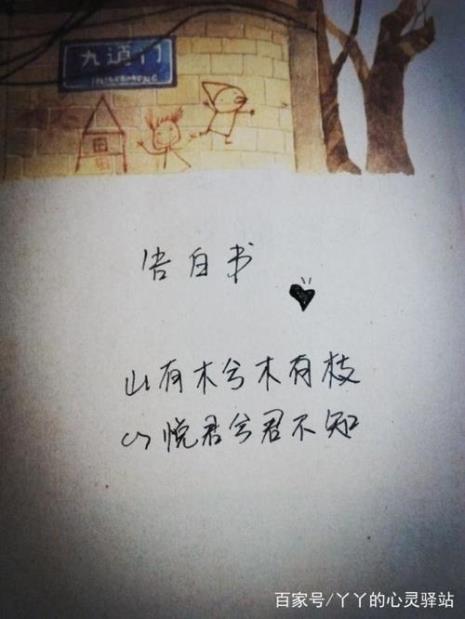 九道门
告白书
山有木兮木有枝
心悦君兮君不知
百家号/丫丫的心灵驿站